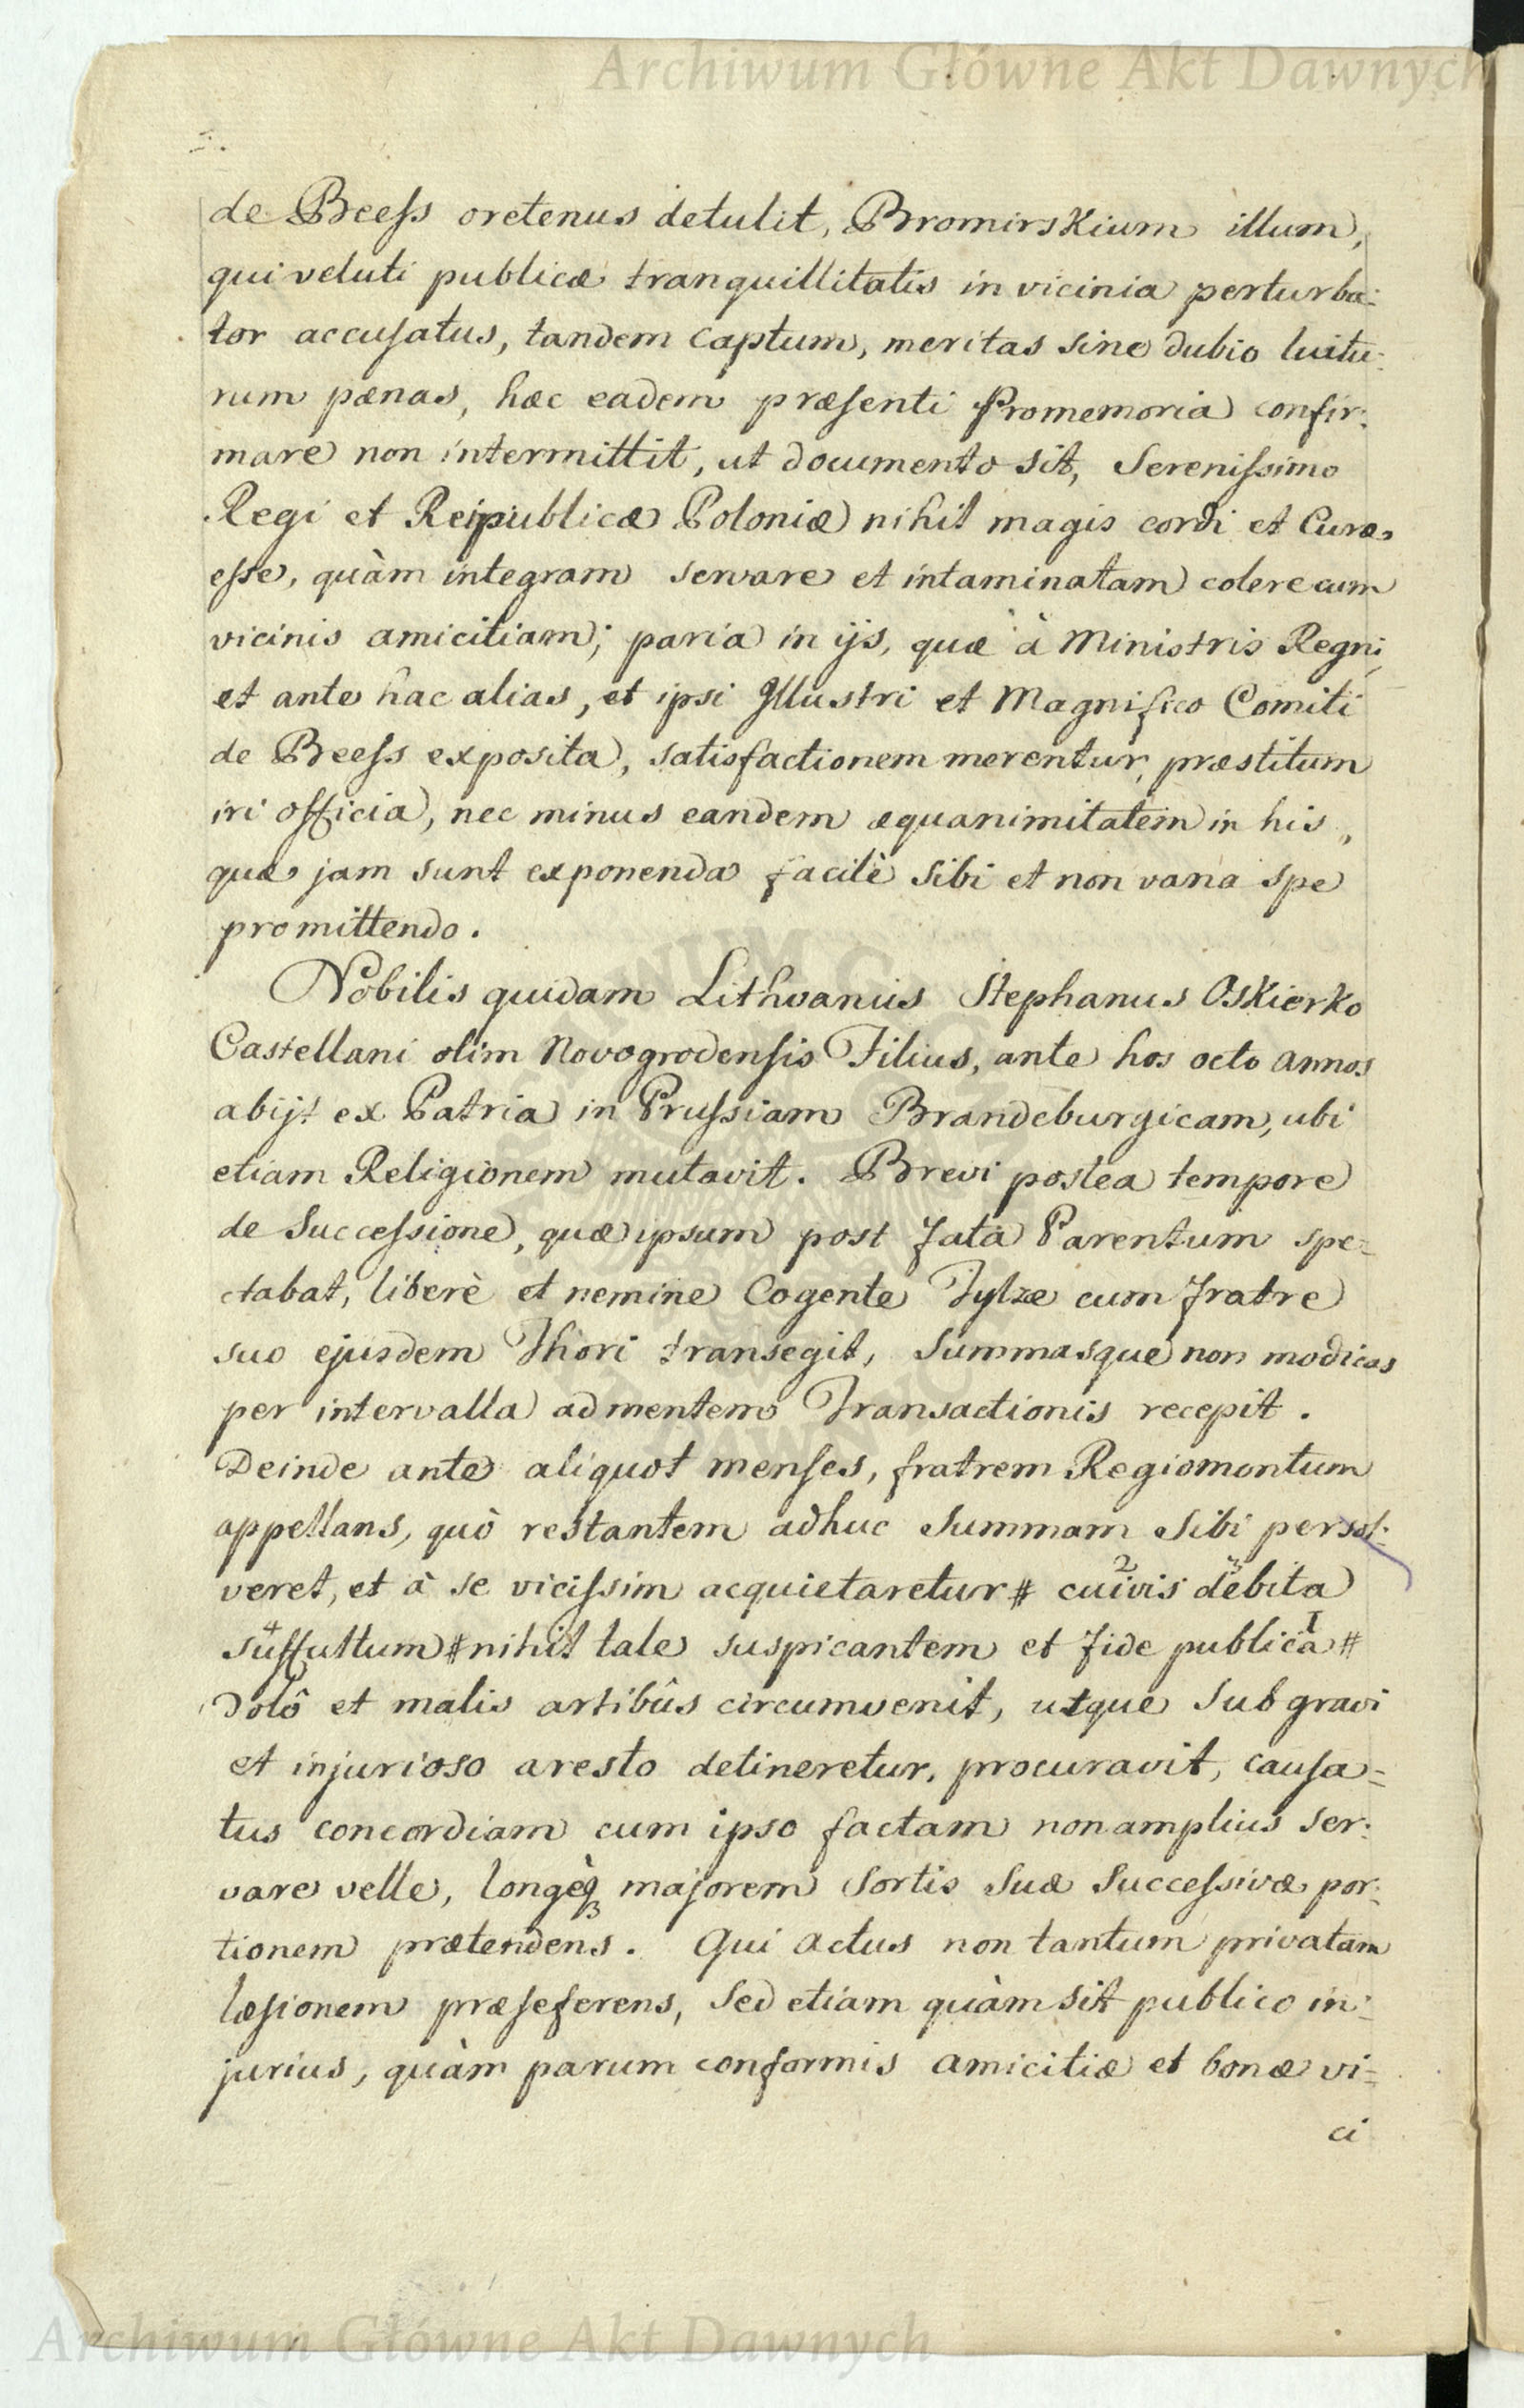 Archiwum Główne Akt Dawnych
de Beess oretenus detulit, Bromirskium illum,
qui veluti publicæ tranquillitatis in vicinia perturba-
tor accusatus, tandem captum, meritas sine dubio luitu-
rum pænas, hæc eadem præsenti Promemoria confir-
mare non intermittit, ut documento sit, Serenissimo
Regi et Reipublicæ Poloniæ nihil magis cordi et Curæ
esse, quàm integram servare et intaminatam colere cum
vicinis amicitiam; paria in ijs, quæ à Ministris Regni
et ante hac alias, et ipsi Illustri et Magnifico Comiti
de Beess exposita, satisfactionem merentur, præstitum
iri officia, nec minus eandem æquanimitatem in his,
quæ jam sunt exponenda facilè sibi et non vana spe
promittendo.
Nobilis quidam Lithvanus Stephanus Oskierko
Castellani olim Novogrodensis Filius, ante hos octo annos
abijt ex Patria in Prussiam Brandeburgicam, ubi
etiam Religionem mutavit. Brevi postea tempore
de Successione, quæ ipsum post fata Parentum spe-
ctabat, liberè et nemine Cogente Tylzæ cum fratre
suo ejusdem Thori transegit, Summasque non modicas
per intervalla ad mentem Transactionis recepit.
Deinde ante aliquot menses, fratrem Regiomontum
appellans, quò restantem adhuc Summam Sibi persol-
veret, et à se vicissim acquietaretur # cui2vis de3bita
su4ffultum # nihil tale suspicantem et fide publicaI #
Dolô et malis artibûs circumvenit, utque sub gravi
et injurioso aresto detineretur, procuravit, causa-
tus concordiam cum ipso factam non amplius ser-
vare velle, longèq majorem Sortis Suæ Successivæ por-
tionem prætendens. Qui actus non tantum privatam
læsionem præseferens, Sed etiam quàm sit publico in-
jurius, quàm parum conformis amicitiæ et bonæ vi-
ci
Archiwum Główne Akt Dawnych